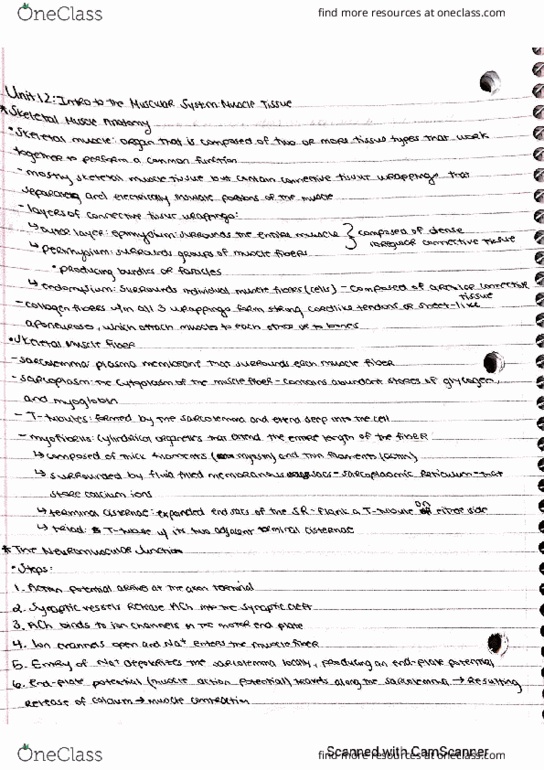 OneClass
find more resources at oneclass.com
Unit 12: Intro to the Muscular System Muscle Tissue
* Skeletal Muscle Anatomy
• Skeletal muscle: organ that is composed of two or more tissue types that work
together to perform a common function
- mostly skeletal muscle tissue but contain connective tissue wrappings that
separating and electrically insulate portions of the muscle
- layers of connective tissue wrappings:
↳ outer layer: epimysium: surrounds the entire muscle } composed of dense
irregular connective tissue
↳ perimysium: surrounds groups of muscle fibers
• producing bundles or fascicles
↳ endomysium: surrounds individual muscle fibers (cells) - composed of areolar connective
tissue
- collagen fibers w/in all 3 wrappings form strong cordlike tendons or sheet-like
aponeuroses, which attach muscles to each other or to bones
• Skeletal Muscle Fiber
- sarcolemma: plasma membrane that surrounds each muscle fiber
- sarcoplasm: the cytoplasm of the muscle fiber - contains abundant stores of glycogen,
and myoglobin
- T-tubules: formed by the sarcolemma and extend deep into the cell
- myofibrils: cylindrical organelles that extend the entire length of the fiber
↳ composed of thick filaments (myosin) and thin filaments (actin)
↳ surrounded by fluid filled membranous sacs - sarcoplasmic reticulum - that
store calcium ions
↳ terminal cisternae: expanded end sacs of the SR - flank a T-tubule on either side
↳ triad: T-tubule w/ its two adjacent terminal cisternae
* The Neuromuscular Junction
• Steps:
1. Action potential arrives at the axon terminal
2. Synaptic vessels release ACh into the synaptic cleft
3. ACh binds to ion channels in the motor end plate
4. Ion channels open and Na+ enters the muscle fiber
5. Entry of Na+ depolarizes the sarcolemma locally, producing an end-plate potential
6. End-plate potential (muscle action potential) travels along the sarcolemma → resulting
release of calcium → muscle contraction
Scanned with CamScanner
OneClass
find more resources at oneclass.com